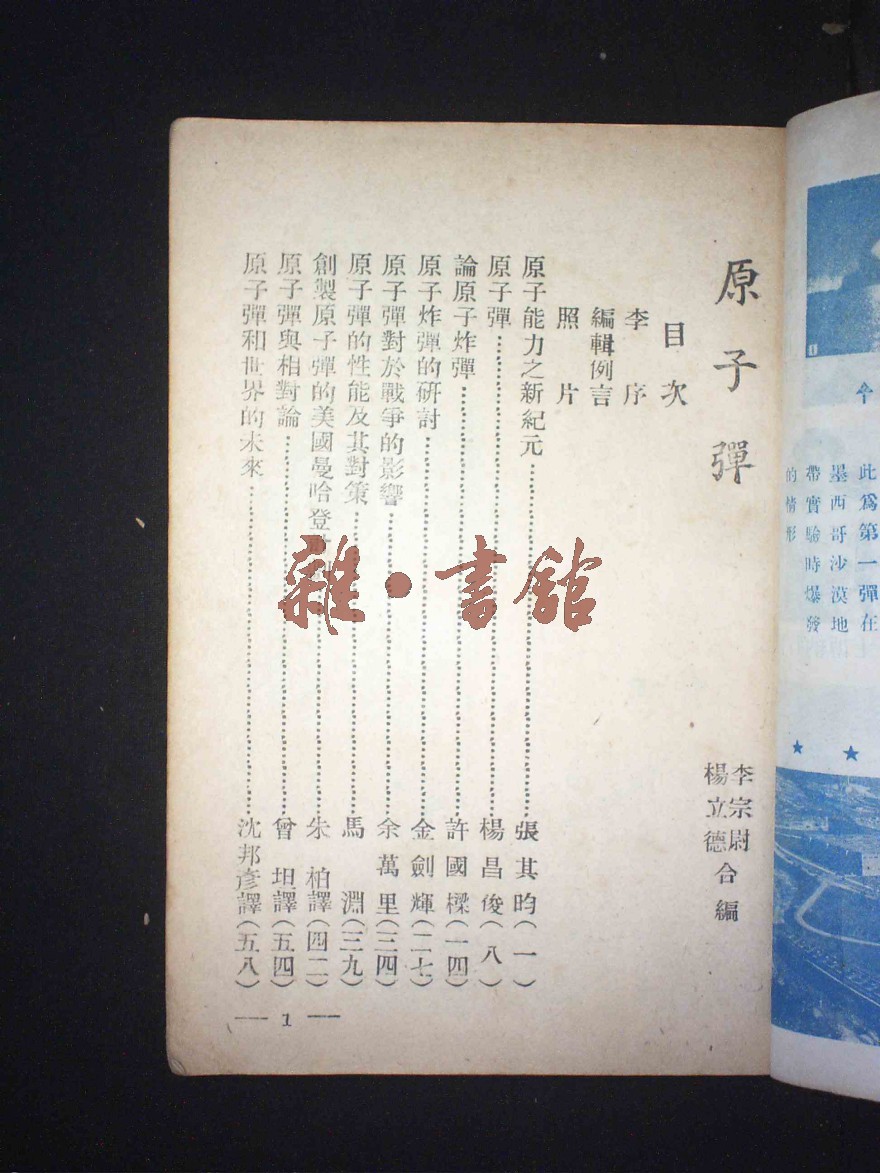 原子彈
李宗尉
楊立德
合編
目次
李序
編輯例言
照片
原子能力之新紀元……張其昀(一)
原子彈……楊昌俊(八)
論原子炸彈……許國樑(一四)
原子炸彈的研討……金劍輝(二七)
原子彈對於戰爭的影響……余萬里(三四)
原子彈的性能及其對策……馬淵(三九)
創製原子彈的美國曼哈登……朱柏譯(四二)
原子彈與相對論……曾坦譯(五四)
原子彈和世界的未來……沈邦彥譯(五八)
— 1 —
此爲第一彈在
墨西哥沙漠地
帶實驗時爆發
的情形
雜·書館